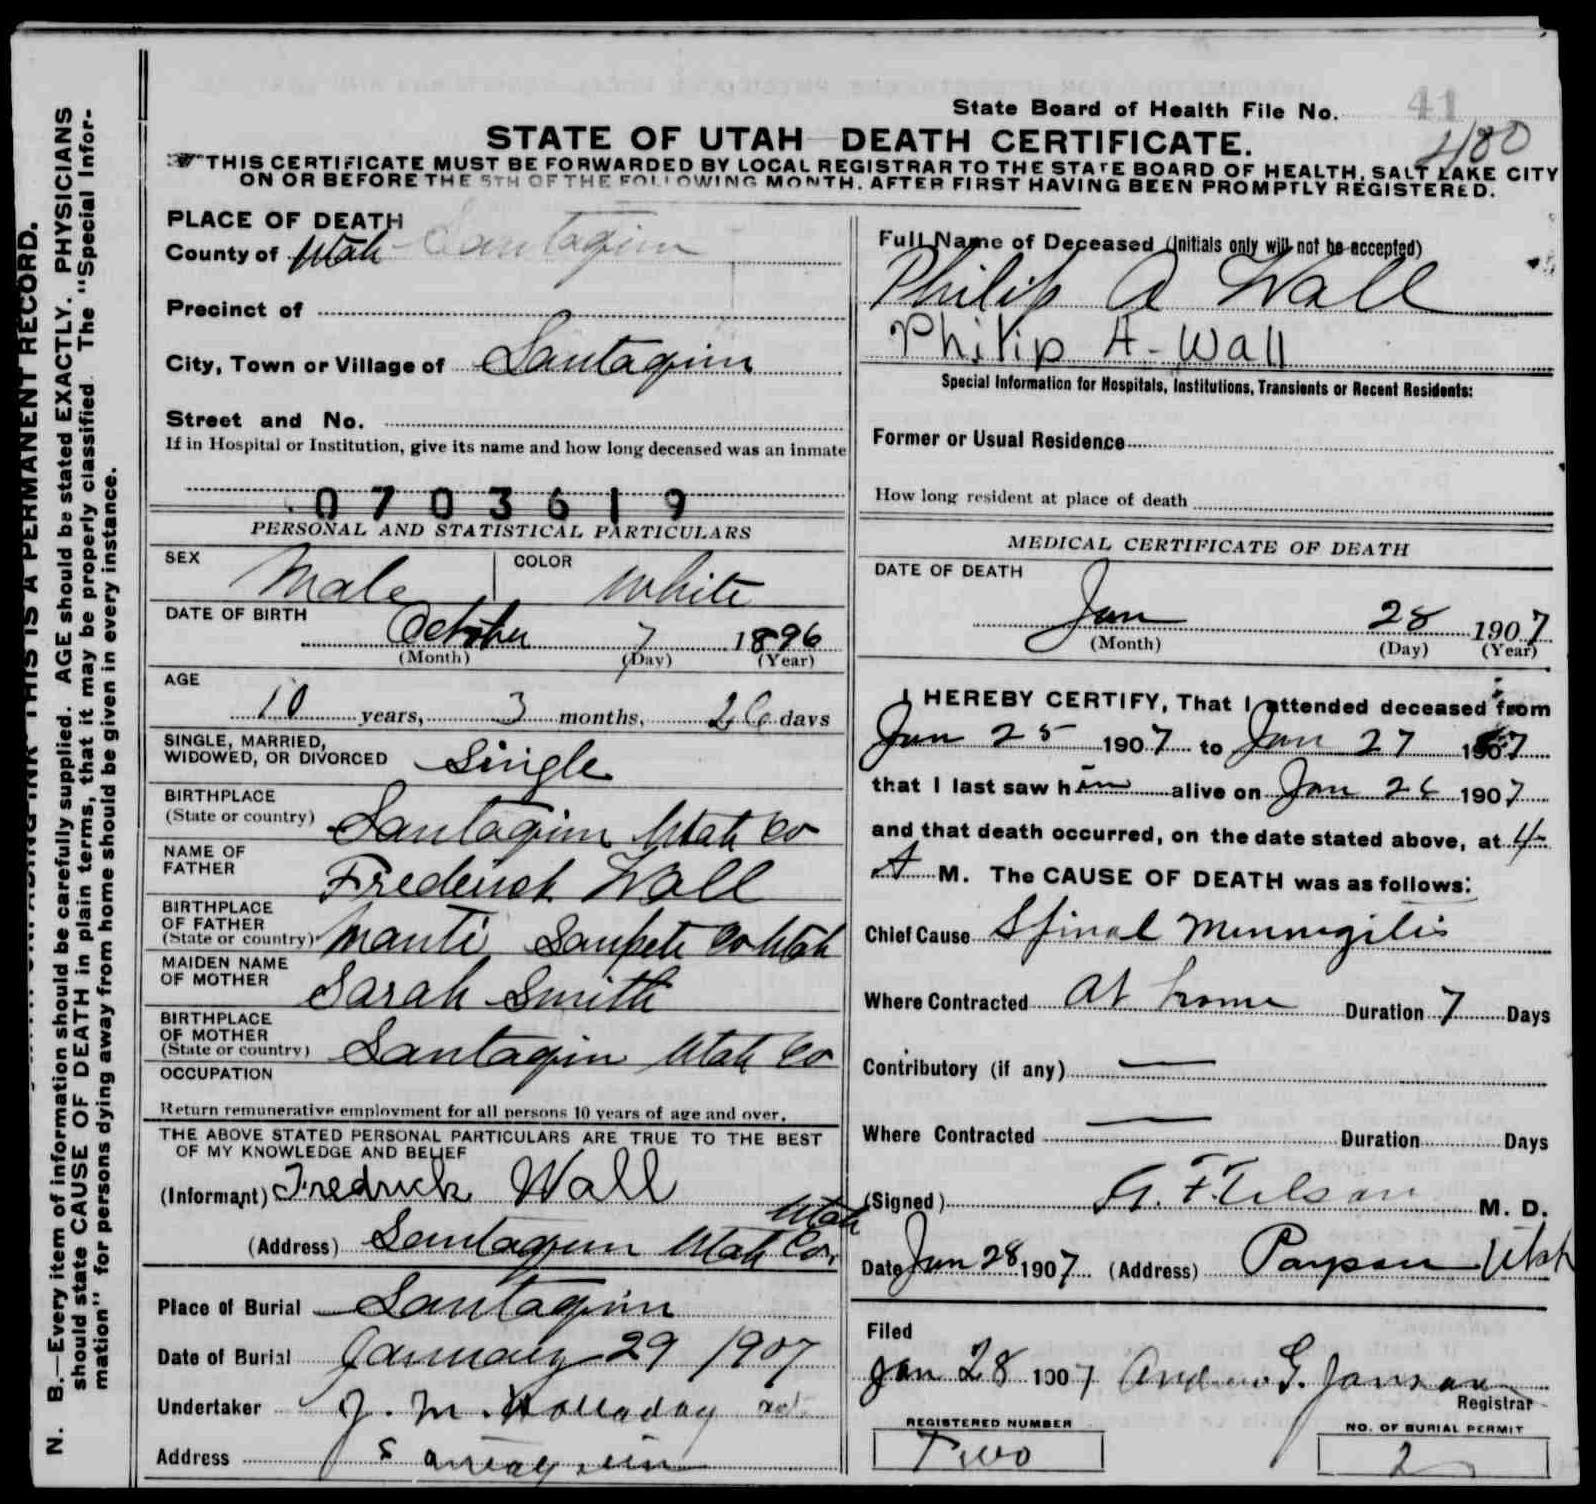 State Board of Health File No. 41
480
STATE OF UTAH DEATH CERTIFICATE.
THIS CERTIFICATE MUST BE FORWARDED BY LOCAL REGISTRAR TO THE STATE BOARD OF HEALTH, SALT LAKE CITY
ON OR BEFORE THE 5TH OF THE FOLLOWING MONTH, AFTER FIRST HAVING BEEN PROMPTLY REGISTERED.
N. B.—Every item of information should be carefully supplied. AGE should be stated EXACTLY. PHYSICIANS
should state CAUSE OF DEATH in plain terms, that it may be properly classified. The "Special Infor-
mation" for persons dying away from home should be given in every instance.
THIS IS A PERMANENT RECORD.
PLACE OF DEATH
County of Utah Santaquin
Precinct of
City, Town or Village of Santaquin
Street and No.
If in Hospital or Institution, give its name and how long deceased was an inmate
0703619
PERSONAL AND STATISTICAL PARTICULARS
SEX Male COLOR White
DATE OF BIRTH October 7 1896
(Month) (Day) (Year)
AGE
10 years, 3 months, 26 days
SINGLE, MARRIED,
WIDOWED, OR DIVORCED Single
BIRTHPLACE
(State or country) Santaquin Utah Co
NAME OF
FATHER Frederick Wall
BIRTHPLACE
OF FATHER
(State or country) Manti Sanpete Co Utah
MAIDEN NAME
OF MOTHER Sarah Smith
BIRTHPLACE
OF MOTHER
(State or country) Santaquin Utah Co
OCCUPATION
Return remunerative employment for all persons 10 years of age and over.
THE ABOVE STATED PERSONAL PARTICULARS ARE TRUE TO THE BEST
OF MY KNOWLEDGE AND BELIEF
(Informant) Fredrick Wall
Utah
(Address) Santaquin Utah Co.
Place of Burial Santaquin
Date of Burial January 29 1907
Undertaker J. M. Holladay
Address Santaquin
Full Name of Deceased (Initials only will not be accepted)
Philip A Wall
Philip A - Wall
Special Information for Hospitals, Institutions, Transients or Recent Residents:
Former or Usual Residence
How long resident at place of death
MEDICAL CERTIFICATE OF DEATH
DATE OF DEATH
Jan 28 1907
(Month) (Day) (Year)
I HEREBY CERTIFY, That I attended deceased from
Jan 25 1907 to Jan 27 1907
that I last saw him alive on Jan 26 1907
and that death occurred, on the date stated above, at 4
A M. The CAUSE OF DEATH was as follows:
Chief Cause Spinal Mennigitis
Where Contracted At home Duration 7 Days
Contributory (if any) —
Where Contracted — Duration Days
(Signed) M. D.
Date Jan 28 1907 (Address) Payson Utah
Filed
Jan 28 1907 Andrew G. Janson
Registrar
REGISTERED NUMBER
Two
NO. OF BURIAL PERMIT
2